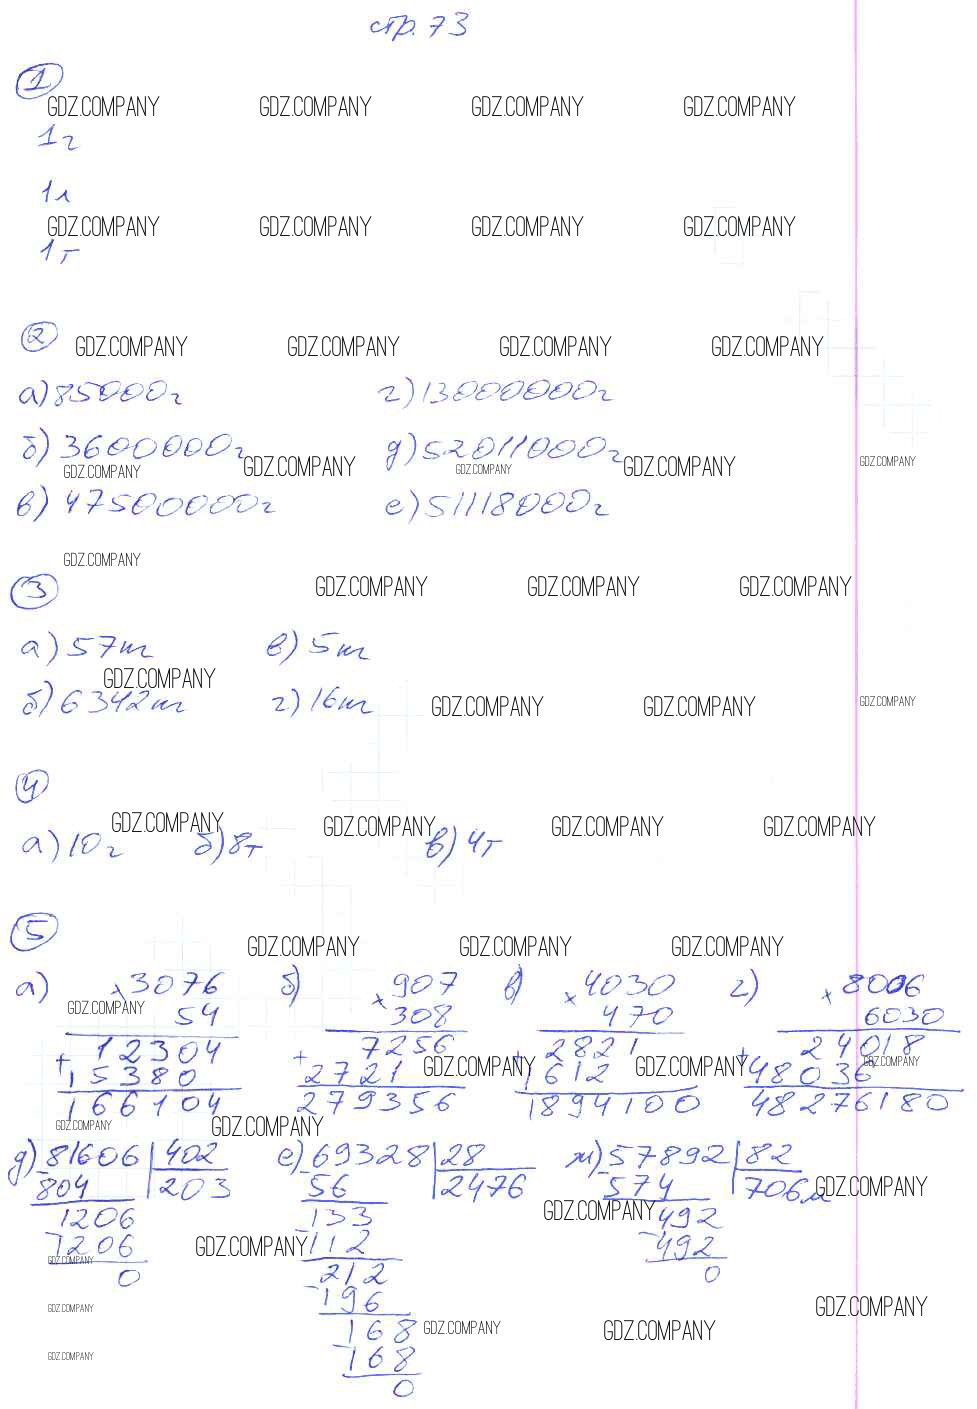 стр. 73
1
GDZ.COMPANY GDZ.COMPANY GDZ.COMPANY GDZ.COMPANY
1г
1л
GDZ.COMPANY GDZ.COMPANY GDZ.COMPANY GDZ.COMPANY
1т
2
GDZ.COMPANY GDZ.COMPANY GDZ.COMPANY GDZ.COMPANY
а) 85000г г) 13000000г
б) 3600000г д) 52011000г
GDZ.COMPANY GDZ.COMPANY GDZ.COMPANY GDZ.COMPANY GDZ.COMPANY
в) 475000000г е) 511118000г
GDZ.COMPANY
3
GDZ.COMPANY GDZ.COMPANY GDZ.COMPANY
а) 57т в) 5т
GDZ.COMPANY
б) 6342т г) 16т
GDZ.COMPANY GDZ.COMPANY GDZ.COMPANY
4
GDZ.COMPANY GDZ.COMPANY GDZ.COMPANY GDZ.COMPANY
а) 10г б) 8т в) 4т
5
GDZ.COMPANY GDZ.COMPANY GDZ.COMPANY
а) ×3076 б) ×907 в) ×4030 г) ×8006
GDZ.COMPANY
54 308 470 6030
+12304 +7256 +2821 +24018
GDZ.COMPANY GDZ.COMPANY GDZ.COMPANY
15380 2721 1612 48036
166104 279356 1894100 48276180
GDZ.COMPANY GDZ.COMPANY
д) 81606 402 е) 69328 28 ж) 57892 82
-804 203 -56 2476 -574 706
GDZ.COMPANY GDZ.COMPANY
1206 133 492
-1206 -112 -492
GDZ.COMPANY GDZ.COMPANY
0 212 0
-196
GDZ.COMPANY GDZ.COMPANY
168
GDZ.COMPANY GDZ.COMPANY
-168
GDZ.COMPANY
0